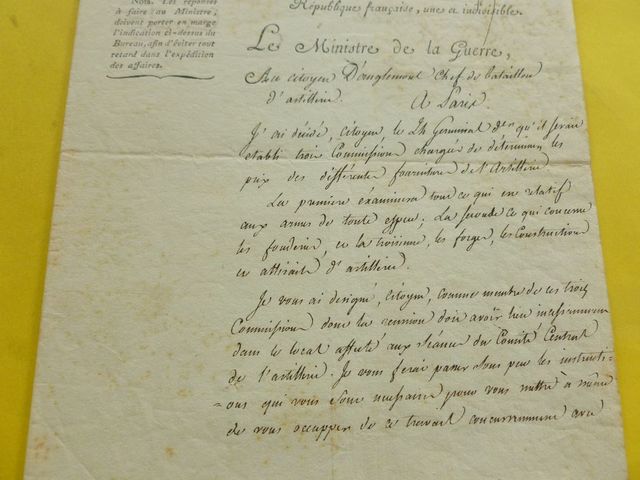 NOTA. Les réponses
à faire au Ministre,
doivent porter en marge
l'indication ci-dessus du
Bureau, afin d'éviter tout
retard dans l'expédition
des affaires.
République française, une et indivisible.
Le Ministre de la Guerre,
Au citoyen D'anglemont Chef de bataillon
d'artillerie.
A Paris.
J'ai décidé, citoyen, le 24 Germinal dern qu'il serait
etabli trois Commissions chargées de déterminer les
prix des différentes fournitures de l'Artillerie.
La premiere éxaminera tout ce qui est relatif
aux armes de toute espece; La seconde ce qui concerne
les fonderies, et la troisieme, les forges, les Constructions
et attirails d'artillerie.
Je vous ai designé, citoyen, comme membre de ces trois
Commissions dont la reunion doit avoir lieu incessamment
dans le local affecté aux séances du Comité Central
de l'artillerie. Je vous ferai passer sous peu les instructi-
=ons qui vous sont necessaires pour vous mettre à même
de vous occupper de ce travail concurremment avec